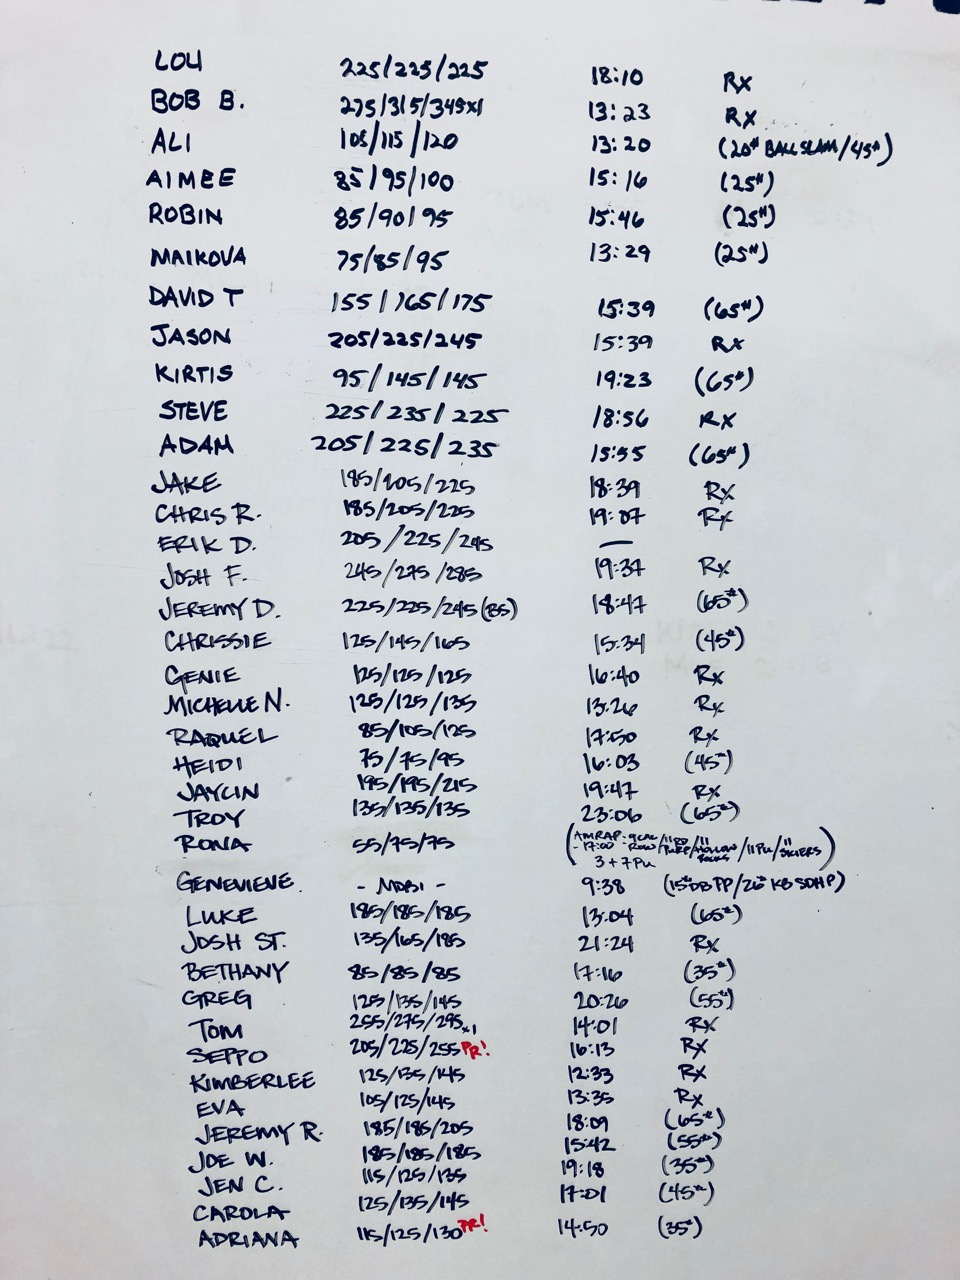 LOU 225/225/225 18:10 Rx
BOB B. 275/315/345x1 13:23 Rx
ALI 105/115/120 13:20 (20# BALL SLAM/45#)
AIMEE 85/95/100 15:16 (25#)
ROBIN 85/90/95 15:46 (25#)
MAIKOVA 75/85/95 13:29 (25#)
DAVID T 155/165/175 15:39 (65#)
JASON 205/225/245 15:39 Rx
KIRTIS 95/145/145 19:23 (65#)
STEVE 225/235/225 18:56 Rx
ADAM 205/225/235 15:55 (65#)
JAKE 185/205/225 18:39 Rx
CHRIS R. 185/205/225 19:07 Rx
ERIK D. 205/225/245 —
JOSH F. 245/275/285 19:37 Rx
JEREMY D. 225/225/245 (BS) 18:47 (65#)
CHRISSIE 125/145/165 15:34 (45#)
GENIE 125/125/125 16:40 Rx
MICHELLE N. 125/125/135 13:26 Rx
RAQUEL 85/105/125 17:50 Rx
HEIDI 75/75/95 16:03 (45#)
JAYCIN 195/195/215 19:47 Rx
TROY 135/135/135 23:06 (65#)
RONA 55/75/75 (AMRAP - 9 CAL / 11 / 11 / 11 PU / 11
- 17:00 - ROW HOLLOW ROCKS SKIERS)
3 + 7 PU
GENEVIEVE - MOBI - 9:38 (15# DB PP/26# KB SDHP)
LUKE 185/185/185 13:04 (65#)
JOSH ST. 135/165/185 21:24 Rx
BETHANY 85/85/85 17:16 (35#)
GREG 125/135/145 20:26 (55#)
TOM 255/275/295x1 14:01 Rx
SEPPO 205/225/255 PR! 16:13 Rx
KIMBERLEE 125/135/145 12:33 Rx
EVA 105/125/145 13:35 Rx
JEREMY R. 185/185/205 18:09 (65#)
JOE W. 185/185/185 15:42 (55#)
JEN C. 115/125/135 19:18 (35#)
CAROLA 125/135/145 17:01 (45#)
ADRIANA 115/125/130 PR! 14:50 (35#)